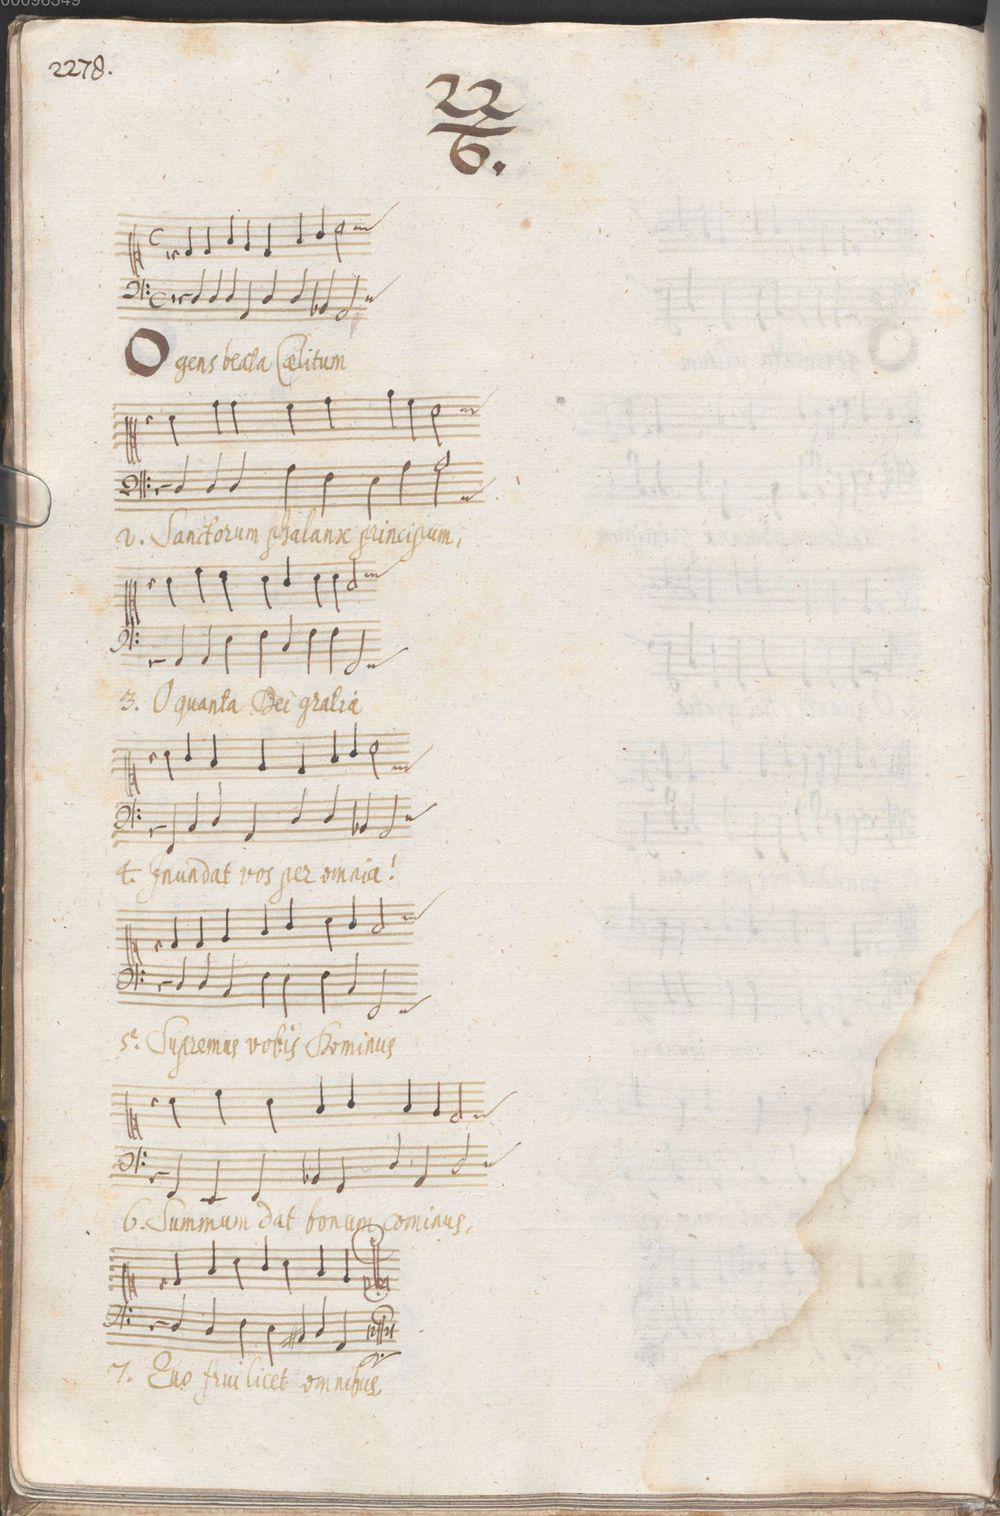 00098549
2278.
22
6.
O gens beata Cælitum
2. Sanctorum phalanx principum,
3. O quanta Dei gratia
4. Inundat vos per omnia!
5. Supremus vobis Dominus
6. Summum dat bonum cominus,
7. Quo frui licet omnibus